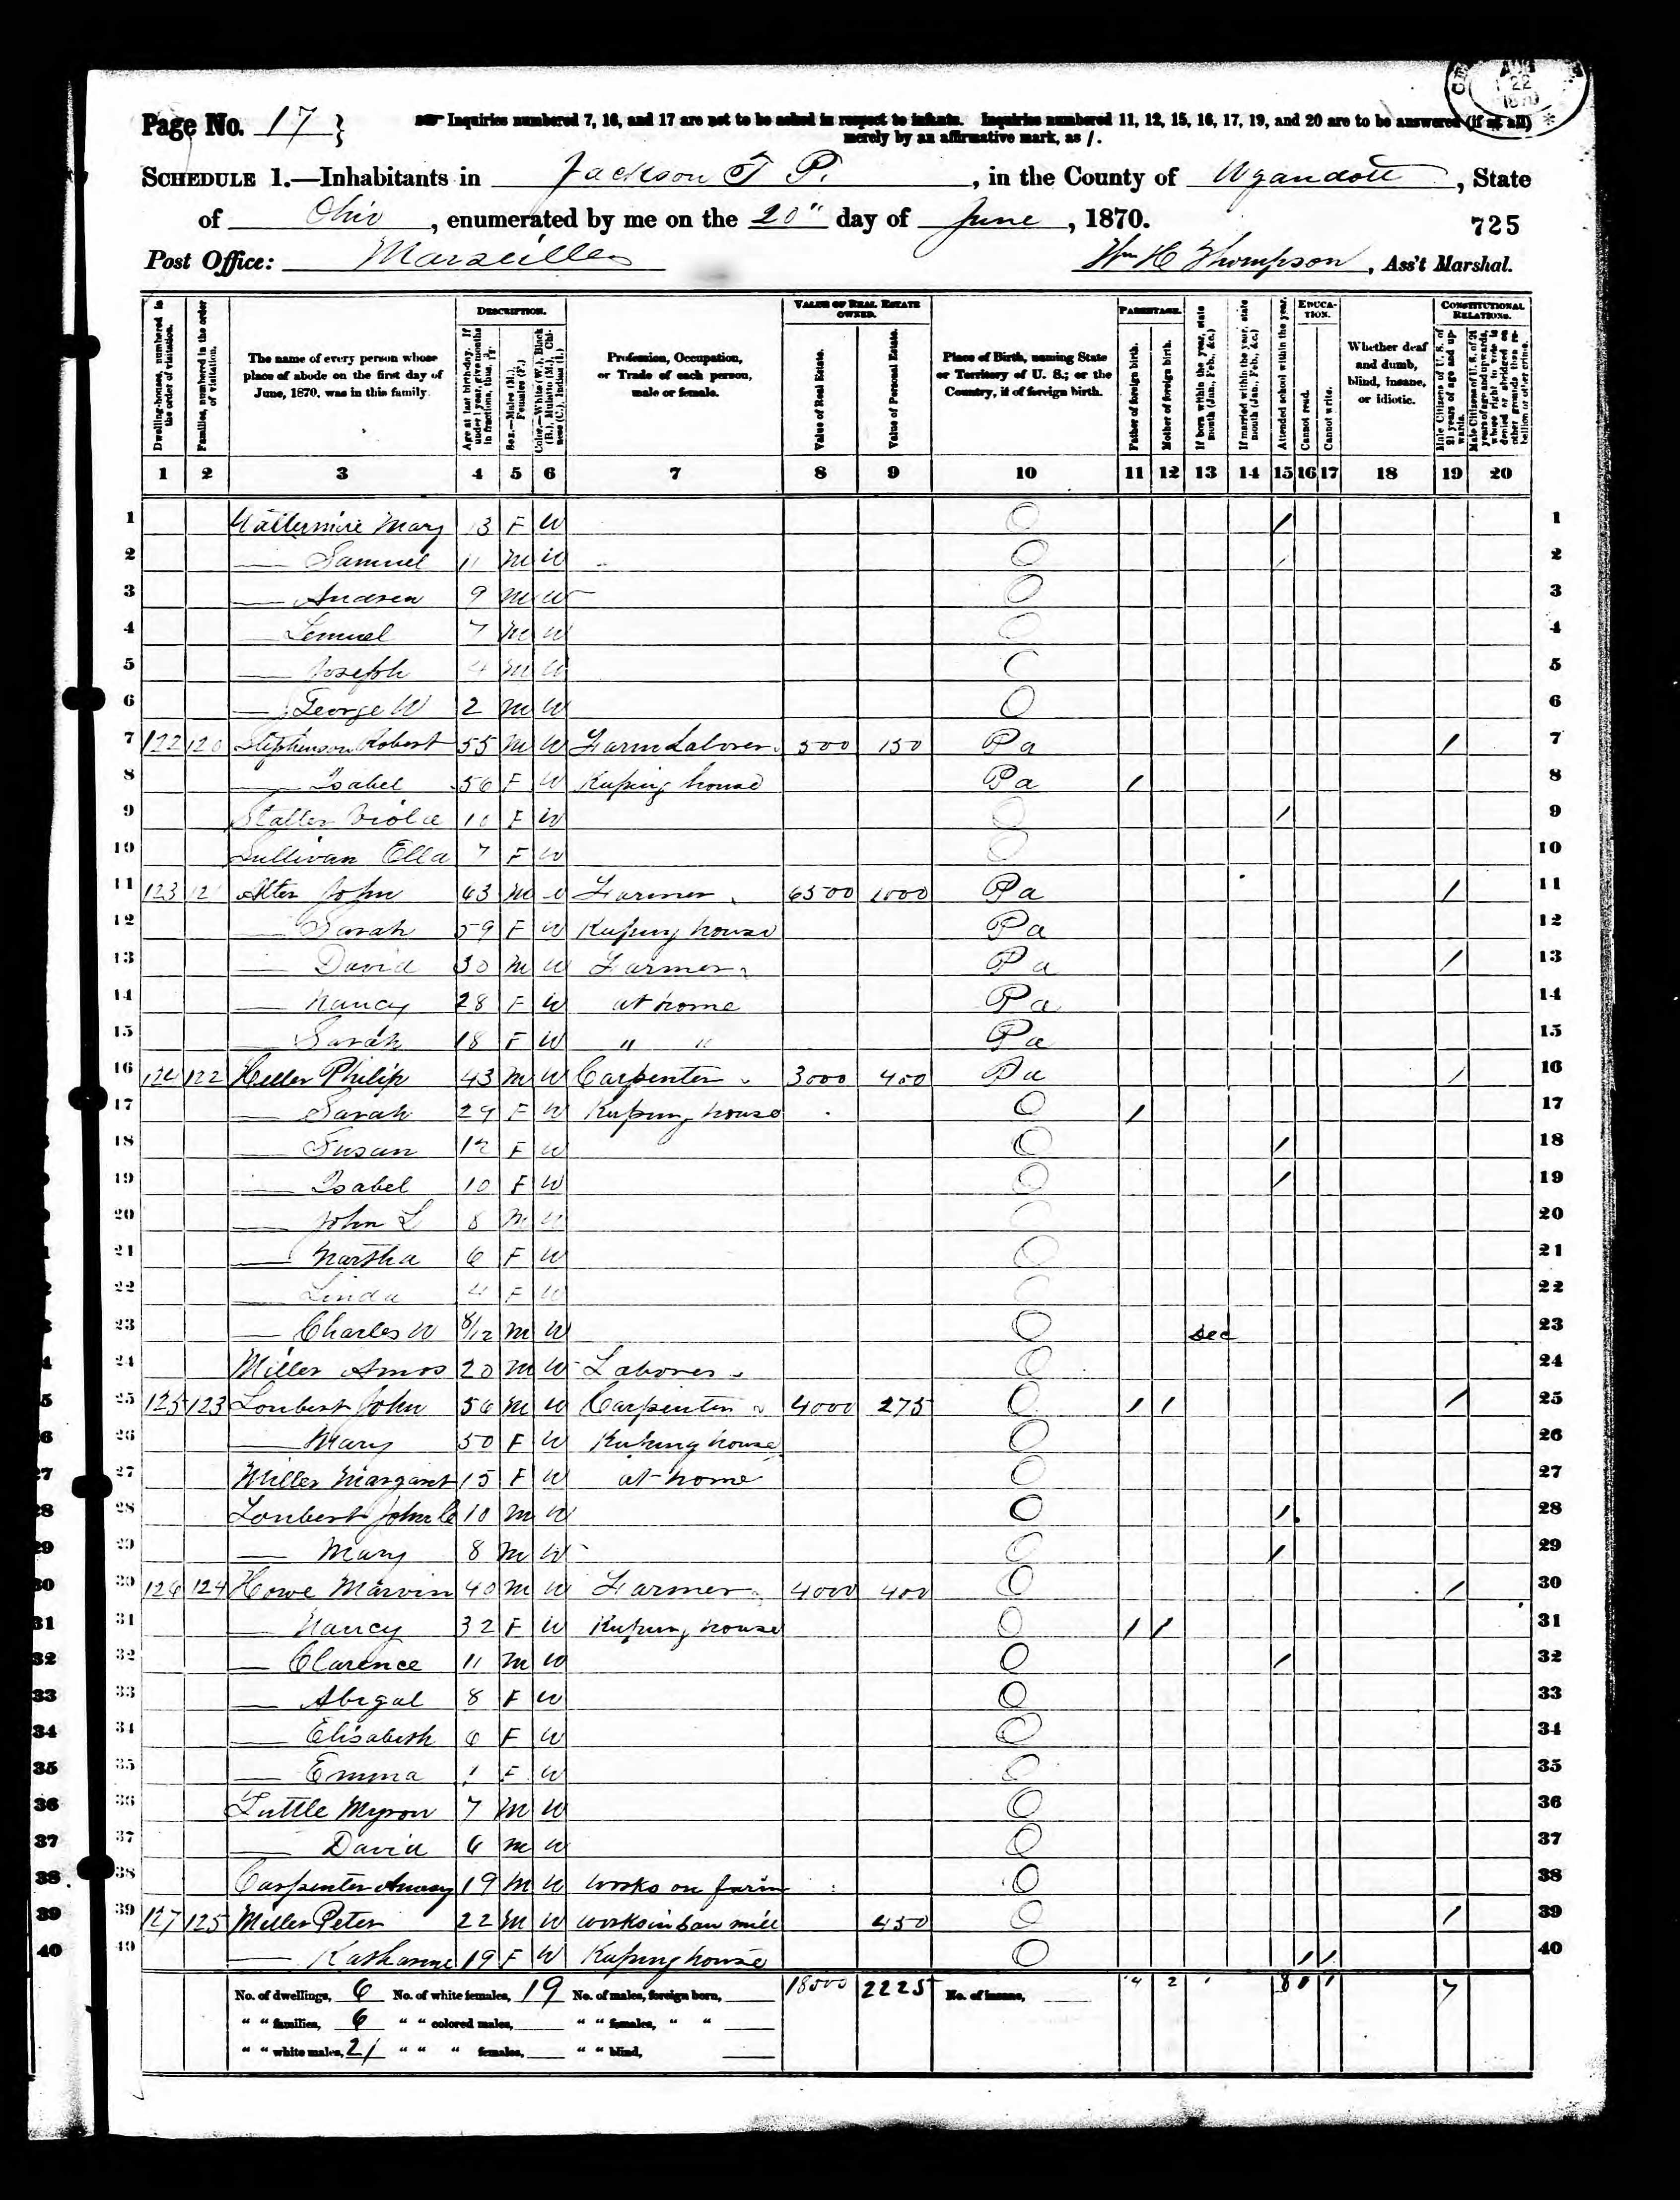 Page No. 17 } Inquiries numbered 7, 16, and 17 are not to be asked in respect to infants. Inquiries numbered 11, 12, 15, 16, 17, 19, and 20 are to be answered (if at all)
merely by an affirmative mark, as /.
AUG 22 1870
SCHEDULE 1.—Inhabitants in Jackson T P. , in the County of Wyandott , State
of Ohio , enumerated by me on the 20" day of June , 1870. 725
Post Office: Marseilles Wm H Thompson , Ass't Marshal.
Dwelling-houses, numbered in the order of visitation.
Families, numbered in the order of visitation.
The name of every person whose place of abode on the first day of June, 1870, was in this family.
DESCRIPTION.
Age at last birth-day. If under 1 year, give months in fractions, thus, 3/12.
Sex.—Males (M.), Females (F.)
Color.—White (W.), Black (B.), Mulatto (M.), Chinese (C.), Indian (I.)
Profession, Occupation, or Trade of each person, male or female.
VALUE OF REAL ESTATE OWNED.
Value of Real Estate.
Value of Personal Estate.
Place of Birth, naming State or Territory of U. S.; or the Country, if of foreign birth.
PARENTAGE.
Father of foreign birth.
Mother of foreign birth.
If born within the year, state month (Jan., Feb., &c.)
If married within the year, state month (Jan., Feb., &c.)
Attended school within the year.
EDUCATION.
Cannot read.
Cannot write.
Whether deaf and dumb, blind, insane, or idiotic.
CONSTITUTIONAL RELATIONS.
Male Citizens of U. S. of 21 years of age and upwards.
Male Citizens of U. S. of 21 years of age and upwards, whose right to vote is denied or abridged on other grounds than rebellion or other crime.
1 2 3 4 5 6 7 8 9 10 11 12 13 14 15 16 17 18 19 20
1 Mary 13 F W O / 1
2 — Samuel 11 M W O / 2
3 — Andrew 9 M W O 3
4 — Lemuel 7 M W O 4
5 — Joseph 4 M W O 5
6 — George W 2 M W O 6
7 122 120 Stephenson Robert 55 M W Farm Laborer 500 150 Pa / 7
8 — Isabel 56 F W Keping house Pa / 8
9 Viola 10 F W O / 9
10 Sullivan Ella 7 F W O 10
11 123 121 Alter John 63 M W Farmer 6500 1000 Pa / 11
12 — Sarah 59 F W Keping house Pa 12
13 — David 30 M W Farmer Pa / 13
14 — Nancy 28 F W at home Pa 14
15 — Sarah 18 F W " " Pa 15
16 124 122 Heller Philip 43 M W Carpenter 3000 400 Pa / 16
17 — Sarah 29 F W Keping house O / 17
18 — Susan 12 F W O / 18
19 — Isabel 10 F W O / 19
20 — John L 8 M W O 20
21 — Martha 6 F W O 21
22 — Linda 4 F W O 22
23 — Charles W 8/12 M W O Dec 23
24 Miller Amos 20 M W Laborer O 24
25 125 123 Loubert John 56 M W Carpenter 4000 275 O / / / 25
26 — Mary 50 F W Keping house O 26
27 Miller Margaret 15 F W at home O 27
28 Loubert John C 10 M W O / 28
29 — Mary 8 M W O / 29
30 126 124 Howe Marvin 40 M W Farmer 4000 400 O / 30
31 — Nancy 32 F W Keping house O / / 31
32 — Clarence 11 M W O / 32
33 — Abigal 8 F W O 33
34 — Elisabeth 6 F W O 34
35 — Emma 1 F W O 35
36 Tuttle Myron 7 M W O 36
37 — David 6 M W O 37
38 Carpenter 19 M W works on farm O 38
39 127 125 Miller Peter 22 M W works in saw mill 450 O / 39
40 — Katharine 19 F W Keping house O / / 40
No. of dwellings, 6 No. of white females, 19 No. of males, foreign born, 18000 2225 No. of insane, 4 2 1 8 1 1 7
" " families, 6 " " colored males, " " females, " "
" " white males, 21 " " " females, " " blind,